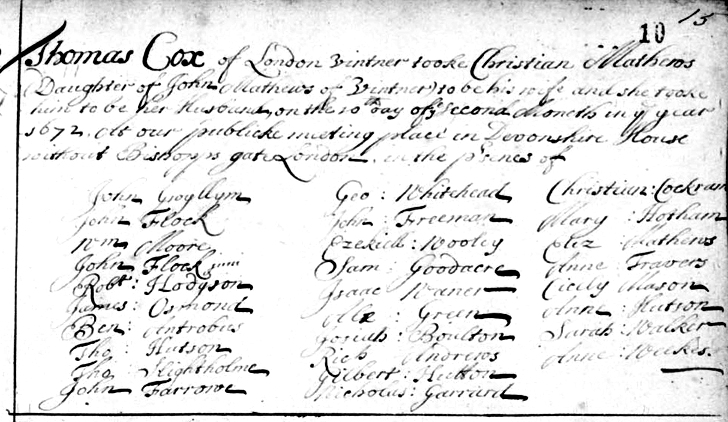 10 15
Thomas Cox of London Vintner tooke Christian Mathews
(Daughter of John Mathews of Vintner) to be his wife and she tooke
him to be her Husband, on the 10th day of ye second Moneth in ye year
1672, At our publicke meeting place in Devonshire House
without Bishops gate London, in the p'senes of
John Gwyllym Geo : Whitehead Christian : Cockram
John Flock John : Freeman Mary : Hotham
Wm Moore Ezekiell : Wooley Eliz Mathews
John Flock Sam : Goodacre Anne : Travers
Robt : Hodgson Isaac Warner Cicely Mason
James : Osmond Alex Green Anne : Hutson
Ben : Antrobus Josiah : Boulton Sarah : Walker
Tho Hutson Rich Andrews Anne : Weekes
Tho Slightholme Gilbert : Hutton
John Farrowe Nicholas : Garrard